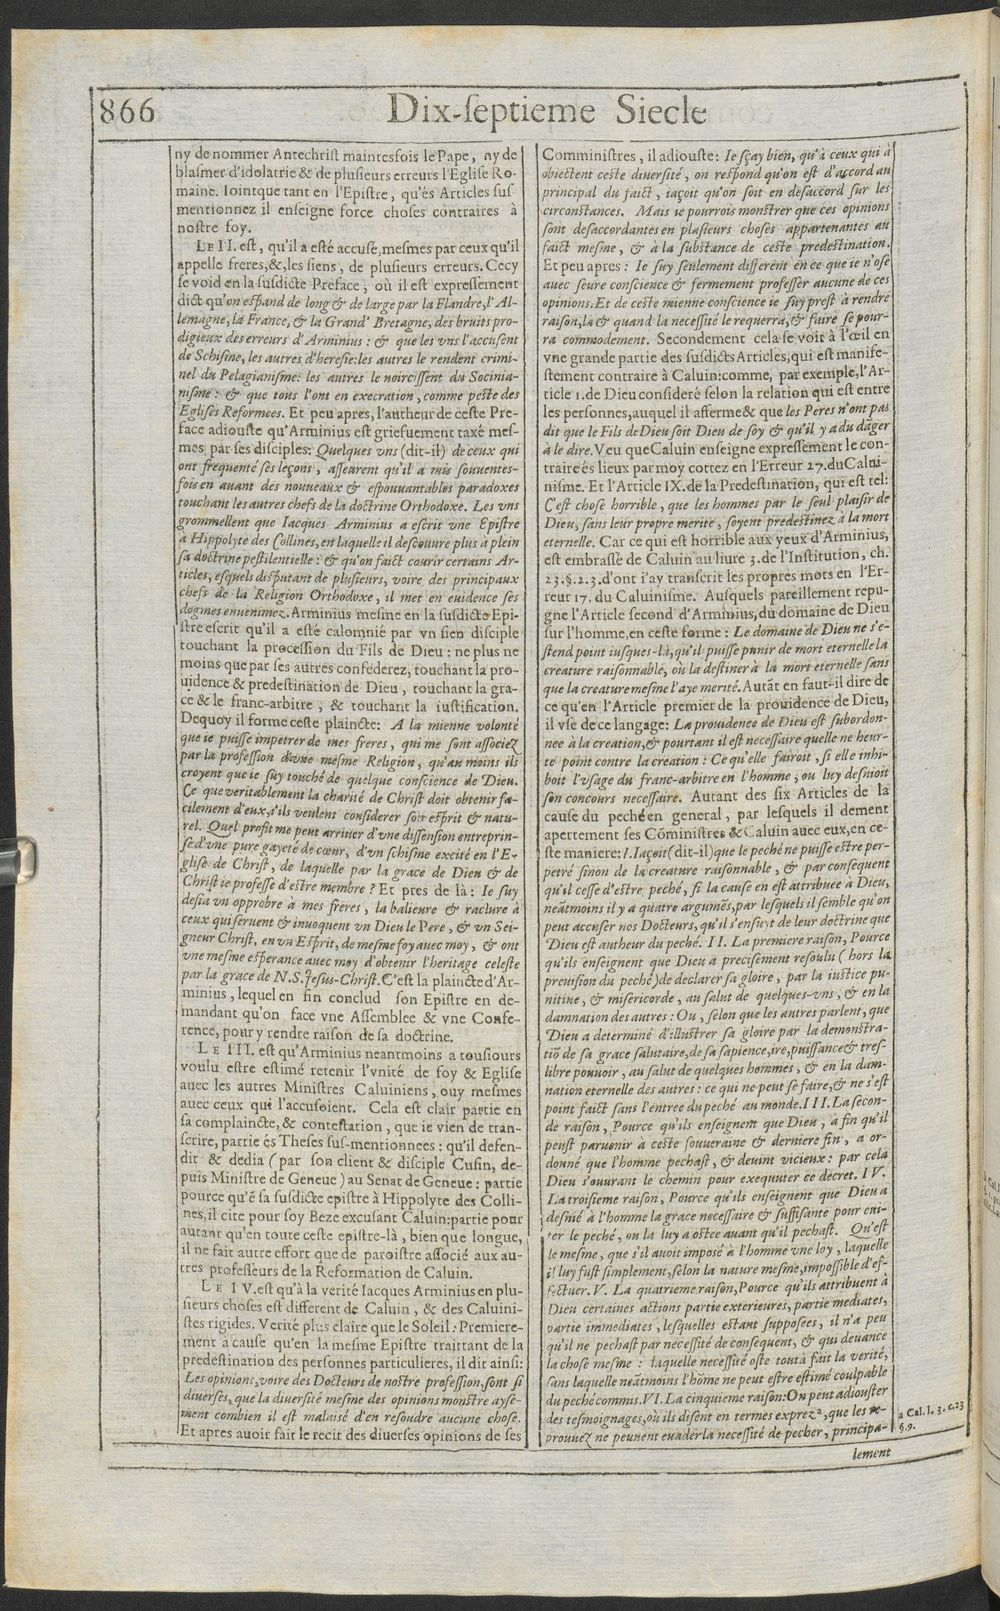 866
Dix-septieme Siecle
ny de nommer Antechrist maintesfois le Pape, ny de
blasmer d'idolatrie & de plusieurs erreurs l'Eglise Ro-
maine. Iointque tant en l'Epistre, qu'és Articles sus
mentionnez il enseigne force choses contraires à
nostre foy.
LE II. est, qu'il a esté accusé, mesmes par ceux qu'il
appelle freres, &, les siens, de plusieurs erreurs. Cecy
se void en la susdicte Preface, où il est expressement
dict qu'on espand de long & de large par la Flandre, l'Al-
lemagne, la France, & la Grand' Bretagne, des bruits pro-
digieux des erreurs d'Arminius: & que les vns l'accusent
de Schisme, les autres d'heresie: les autres le rendent crimi-
nel du Pelagianisme: les autres le noircissent du Socinia-
nisme: & que tous l'ont en execration, comme peste des
Eglises Reformees. Et peu apres, l'autheur de ceste Pre-
face adiouste qu'Arminius est griefuement taxé mes-
mes par ses disciples: Quelques vns (dit-il) de ceux qui
ont frequenté ses leçons, asseurent qu'il a mis souuentes-
fois en auant des nouueaux & espouuantables paradoxes
touchant les autres chefs de la doctrine Orthodoxe. Les vns
grommellent que Iacques Arminius a escrit vne Epistre
à Hippolyte des Collines, en laquelle il descouure plus à plein
sa doctrine pestilentielle: & qu'on faict courir certains Ar-
ticles, esquels disputant de plusieurs, voire des principaux
chefs de la Religion Orthodoxe, il met en euidence ses
dogmes enuenimez. Arminius mesme en la susdicte Epi-
stre escrit qu'il a esté calomnié par vn sien disciple
touchant la procession du Fils de Dieu: ne plus ne
moins que par ses autres confederez, touchant la pro-
uidence & predestination de Dieu, touchant la gra-
ce & le franc-arbitre, & touchant la iustification.
Dequoy il forme ceste plaincte: A la mienne volonté
que ie puisse impetrer de mes freres, qui me sont associez
par la profession d'vne mesme Religion, qu'au moins ils
croyent que ie suy touché de quelque conscience de Dieu.
Ce que veritablement la charité de Christ doit obtenir fa-
cilement d'eux, s'ils veulent considerer son esprit & natu-
rel. Quel profit me peut arriuer d'vne dissension entreprin-
se d'vne pure gayeté de cœur, d'vn schisme excité en l'E-
glise de Christ, de laquelle par la grace de Dieu & de
Christ ie professe d'estre membre? Et pres de là: Ie suy
desia vn opprobre à mes freres, la balieure & raclure à
ceux qui seruent & inuoquent vn Dieu le Pere, & vn Sei-
gneur Christ, en vn Esprit, de mesme foy auec moy, & ont
vne mesme esperance auec moy d'obtenir l'heritage celeste
par la grace de N. S. Jesus-Christ. C'est la plaincte d'Ar-
minius, lequel en fin conclud son Epistre en de-
mandant qu'on face vne Assemblee & vne Confe-
rence, pour y rendre raison de sa doctrine.
LE III. est qu'Arminius neantmoins a tousiours
voulu estre estimé retenir l'vnité de foy & Eglise
auec les autres Ministres Caluiniens, ouy mesmes
auec ceux qui l'accusoient. Cela est clair partie en
sa complaincte, & contestation, que ie vien de tran-
scrire, partie és Theses sus-mentionnees: qu'il defen-
dit & dedia (par son client & disciple Cusin, de-
puis Ministre de Geneue) au Senat de Geneue: partie
pource qu'ẽ sa susdicte epistre à Hippolyte des Colli-
nes, il cite pour soy Beze excusant Caluin: partie pour
autant qu'en toute ceste epistre-là, bien que longue,
il ne fait autre effort que de paroistre associé aux au-
tres professeurs de la Reformation de Caluin.
LE IV. est qu'à la verité Iacques Arminius en plu-
sieurs choses est different de Caluin, & des Caluini-
stes rigides. Verité plus claire que le Soleil: Premiere-
ment à cause qu'en la mesme Epistre traittant de la
predestination des personnes particulieres, il dit ainsi:
Les opinions, voire des Docteurs de nostre profession, sont si
diuerses, que la diuersité mesme des opinions monstre aysé-
ment combien il est malaisé d'en resoudre aucune chose.
Et apres auoir fait le recit des diuerses opinions de ses
Comministres, il adiouste: Ie sçay bien, qu'à ceux qui à
obiectent ceste diuersité, on respond qu'on est d'accord au
principal du faict, iaçoit qu'on soit en desaccord sur les
circonstances. Mais ie pourrois monstrer que ces opinions
sont desaccordantes en plusieurs choses appartenantes au
faict mesme, & à la substance de ceste predestination.
Et peu apres: Ie suy seulement different en ce que ie n'ose
auec seure conscience & fermement professer aucune de ces
opinions. Et de ceste mienne conscience ie suy prest à rendre
raison, là & quand la necessité le requerra, & faire se pour-
ra commodement. Secondement cela se voit à l'œil en
vne grande partie des susdicts Articles, qui est manife-
stement contraire à Caluin: comme, par exemple, l'Ar-
ticle 1. de Dieu consideré selon la relation qui est entre
les personnes, auquel il afferme & que les Peres n'ont pas
dit que le Fils de Dieu soit Dieu de soy & qu'il y a du dãger
à le dire. Veu que Caluin enseigne expressement le con-
traire és lieux par moy cottez en l'Erreur 27. du Calui-
nisme. Et l'Article IX. de la Predestination, qui est tel:
C'est chose horrible, que les hommes par le seul plaisir de
Dieu, sans leur propre merite, soyent predestinez à la mort
eternelle. Car ce qui est horrible aux yeux d'Arminius,
est embrassé de Caluin au liure 3. de l'Institution, ch.
23. §. 2. 3. d'ont i'ay transcrit les propres mots en l'Er-
reur 17. du Caluinisme. Ausquels pareillement repu-
gne l'Article second d'Arminius, du domaine de Dieu
sur l'homme, en ceste forme: Le domaine de Dieu ne s'e-
stend point iusques-là, qu'il puisse punir de mort eternelle la
creature raisonnable, ou la destiner à la mort eternelle sans
que la creature mesme l'aye merité. Autãt en faut-il dire de
ce qu'en l'Article premier de la prouidence de Dieu,
il vse de ce langage: La prouidence de Dieu est subordon-
nee à la creation, & pourtant il est necessaire quelle ne heur-
te point contre la creation: Ce qu'elle fairoit, si elle inhi-
boit l'vsage du franc-arbitre en l'homme, ou luy desnioit
son concours necessaire. Autant des six Articles de la
cause du peché en general, par lesquels il dement
apertement ses Cõministres & Caluin auec eux, en ce-
ste maniere: I. Iaçoit (dit-il) que le peché ne puisse estre per-
petré sinon de la creature raisonnable, & par consequent
qu'il cesse d'estre peché, si la cause en est attribuee à Dieu,
neãtmoins il y a quatre argumẽs, par lesquels il semble qu'on
peut accuser nos Docteurs, qu'il s'ensuyt de leur doctrine que
Dieu est autheur du peché. II. La premiere raison, Pource
qu'ils enseignent que Dieu a precisément resoulu (hors la
preuision du peché) de declarer sa gloire, par la iustice pu-
nitiue, & misericorde, au salut de quelques-vns, & en la
damnation des autres: Ou, selon que les autres parlent, que
Dieu a determiné d'illustrer sa gloire par la demonstra-
tiõ de sa grace salutaire, de sa sapience, ire, puissance & tres-
libre pouuoir, au salut de quelques hommes, & en la dam-
nation eternelle des autres: ce qui ne peut se faire, & ne s'est
point faict sans l'entree du peché au monde. III. La secon-
de raison, Pource qu'ils enseignent que Dieu, à fin qu'il
peust paruenir à ceste souueraine & derniere fin, a or-
donné que l'homme pechast, & deuint vicieux: par cela
Dieu s'ouurant le chemin pour exequuter ce decret. IV.
La troisieme raison, Pource qu'ils enseignent que Dieu a
desnié à l'homme la grace necessaire & suffisante pour eui-
ter le peché, ou la luy a ostee auant qu'il pechast. Qu'est
le mesme, que s'il auoit imposé à l'homme vne loy, laquelle
il luy fust simplement, selon la nature mesme, impossible d'ef-
fectuer. V. La quatrieme raison, Pource qu'ils attribuent à
Dieu certaines actions partie exterieures, partie mediates,
partie immediates, lesquelles estant supposees, il n'a peu
qu'il ne pechast par necessité de consequent, & qui deuance
la chose mesme: laquelle necessité oste tout à fait la verité,
sans laquelle neãtmoins l'hõme ne peut estre estimé coulpable
du peché commis. VI. La cinquieme raison: On peut adiouster
des tesmoignages, où ils disent en termes exprez a, que les re-
prouuez ne peuuent euader la necessité de pecher, principa-
a Cal. l. 3. c. 23
§. 9.
lement